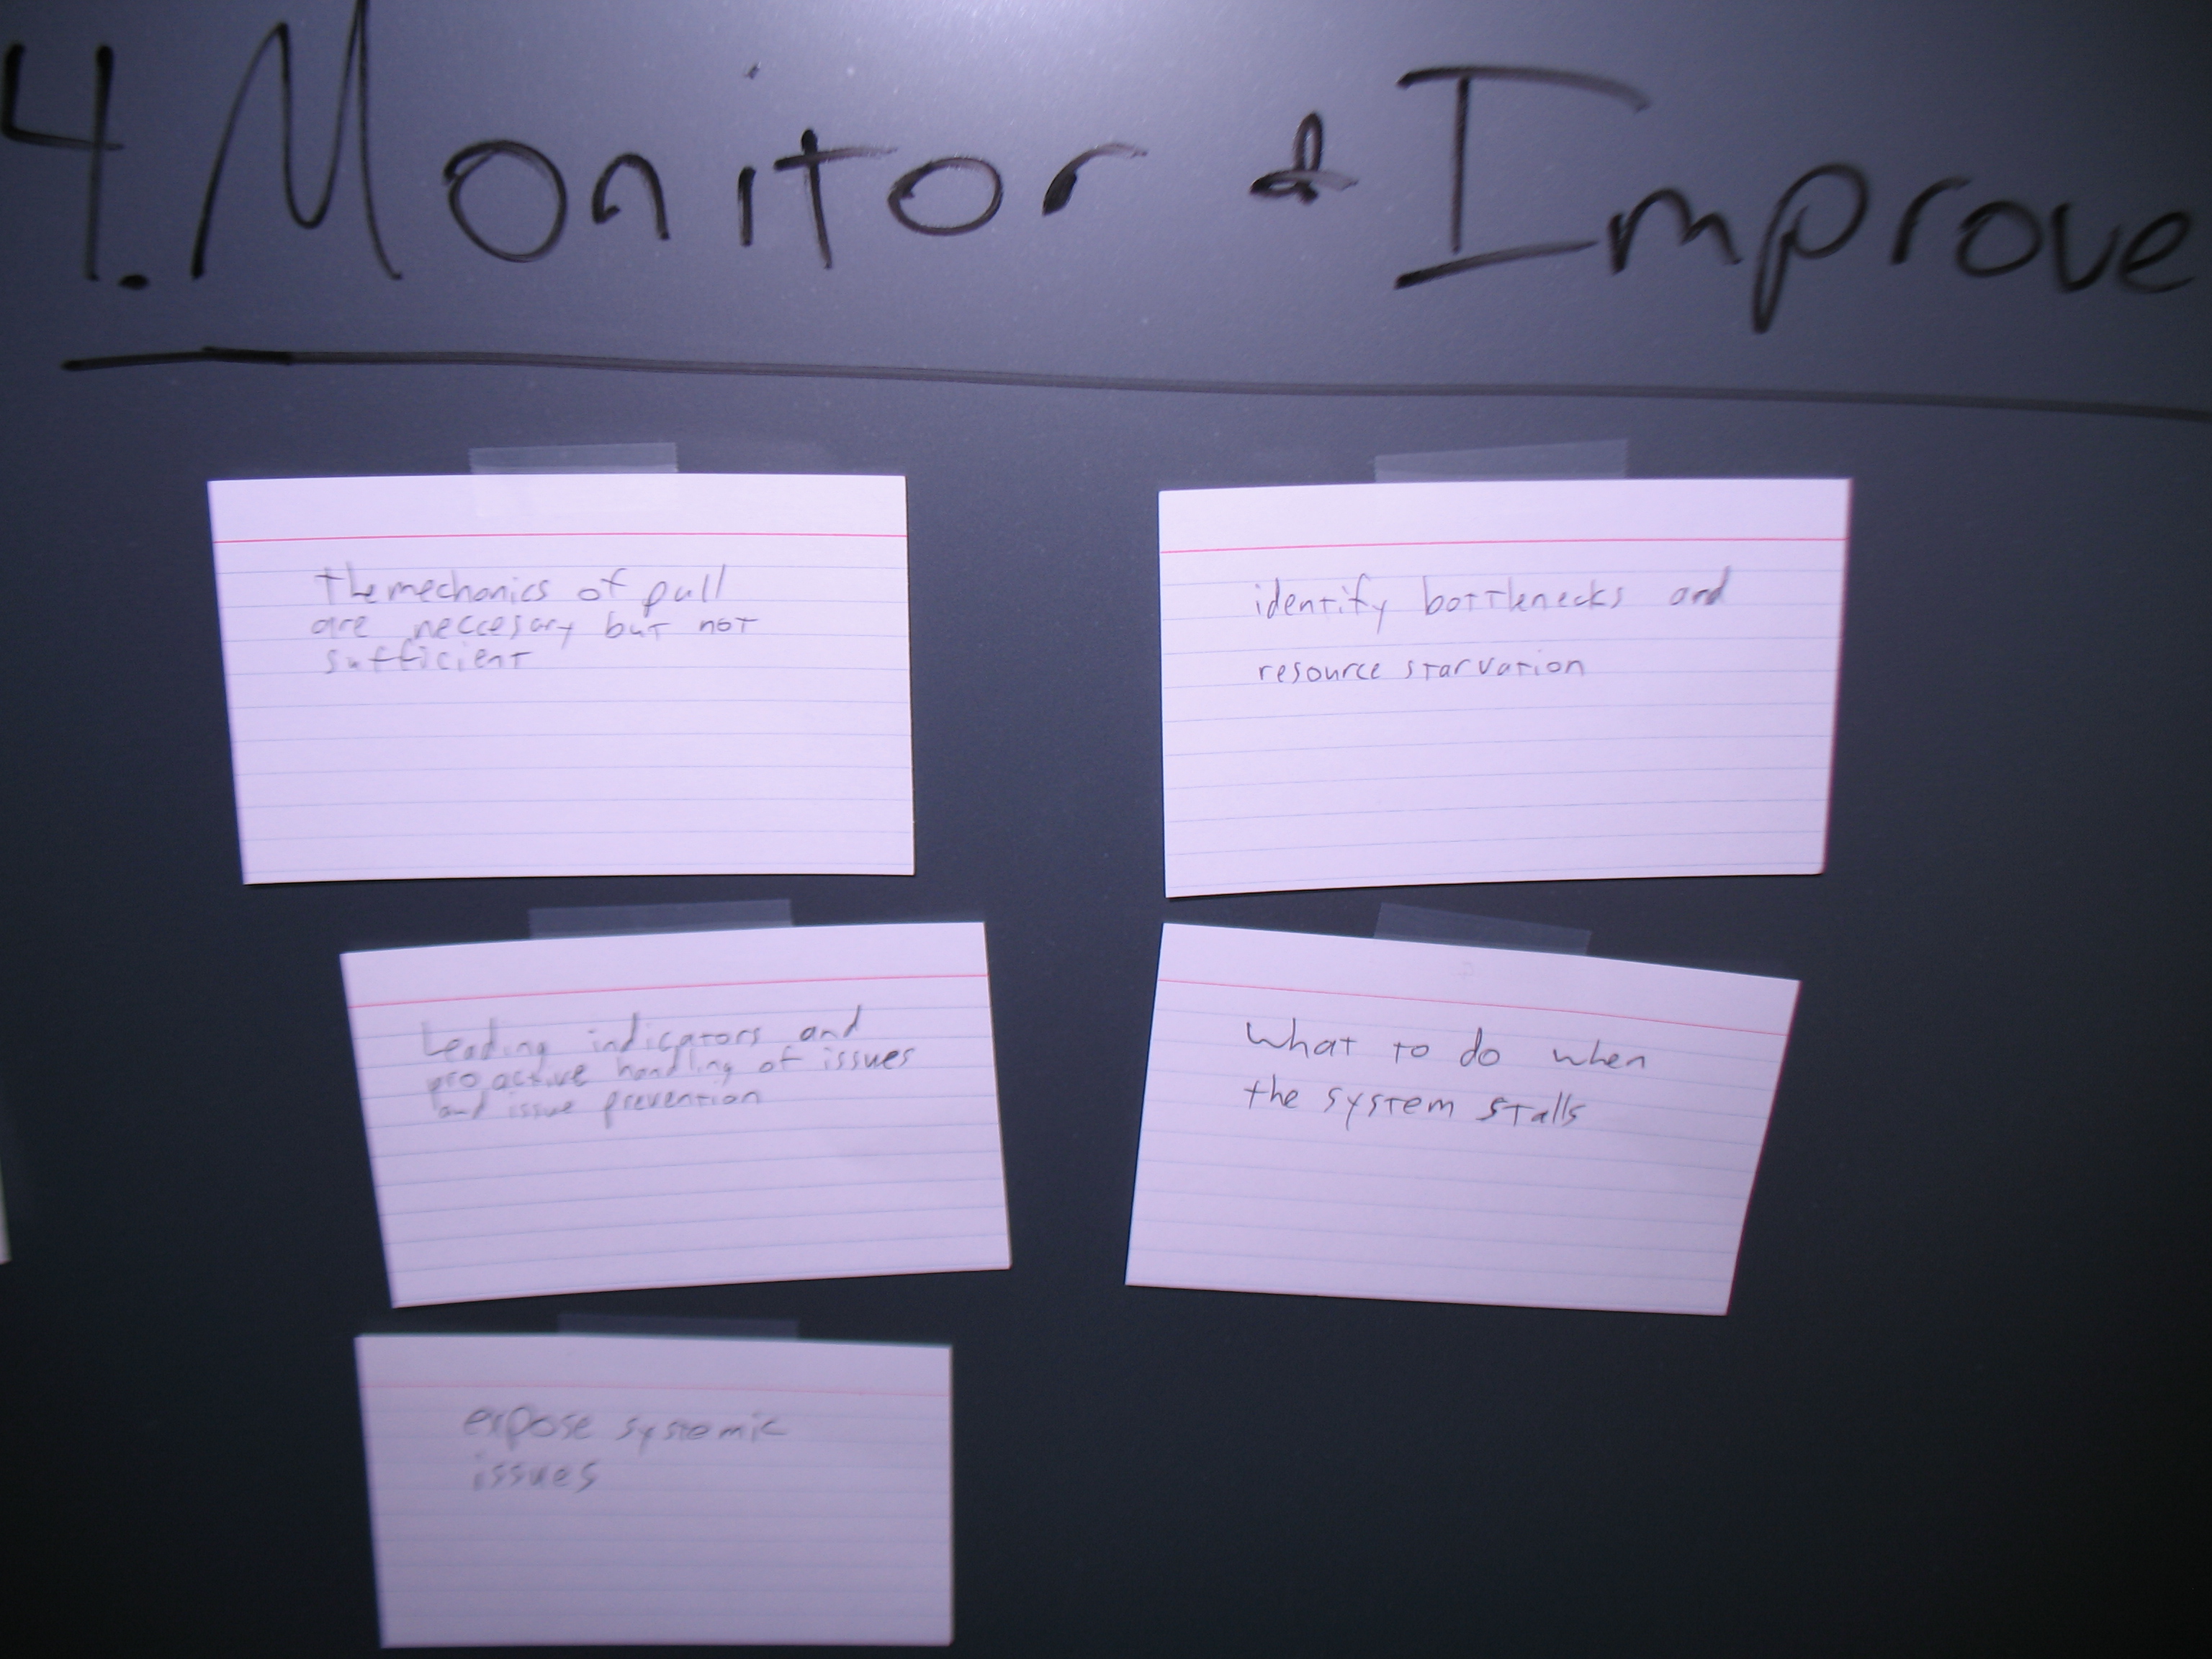 4. Monitor & Improve
the mechanics of pull
are neccesary but not
sufficient
identify bottlenecks and
resource starvation
Leading indicators and
pro active handling of issues
and issue prevention
What to do when
the system stalls
expose systemic
issues